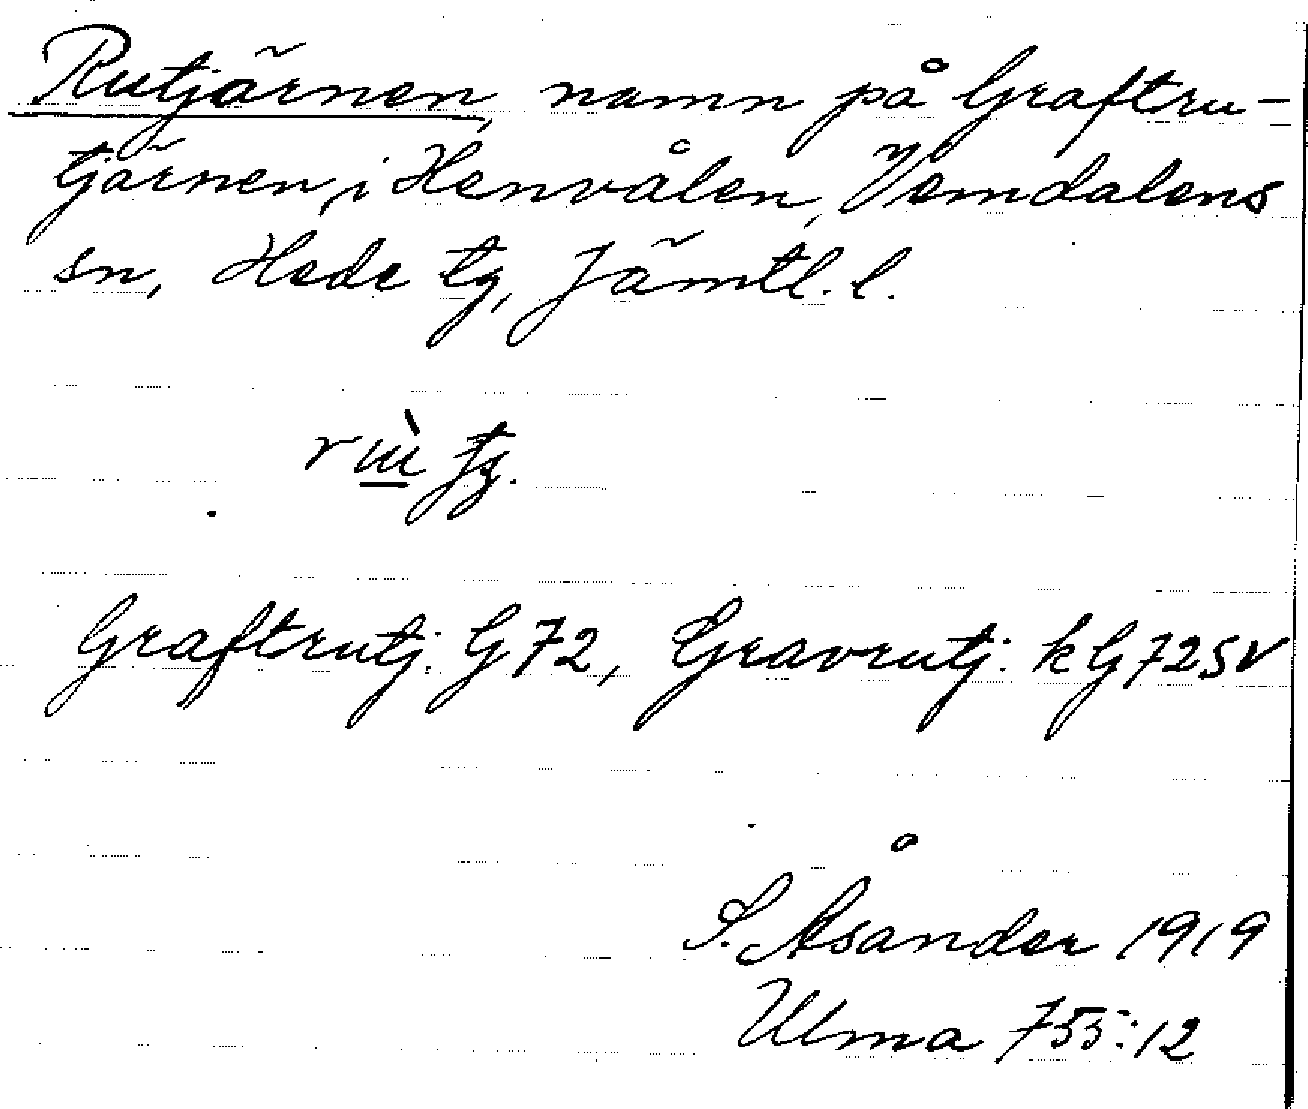 Rutjärnen, namn på Graftru-
tjärnen, i Henvålen, Vemdalens
sn, Hede tg, Jämtl. l.
tg.
Graftrutj. G72, Gravrutj. k G72SV
S. Åsander 1919
Ulma 755:12